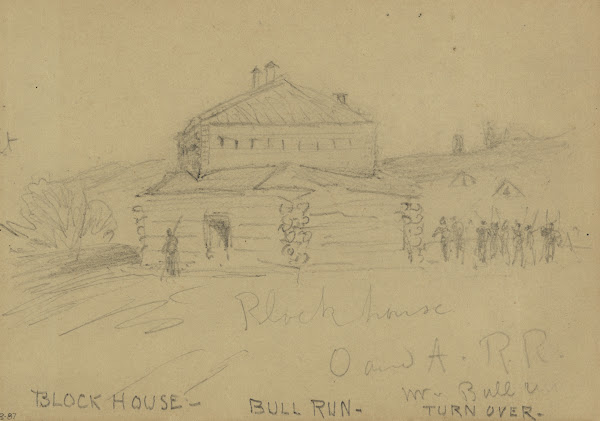 Block house
O and A. R.R.
nr. Bull
BLOCK HOUSE - BULL RUN - TURN OVER -